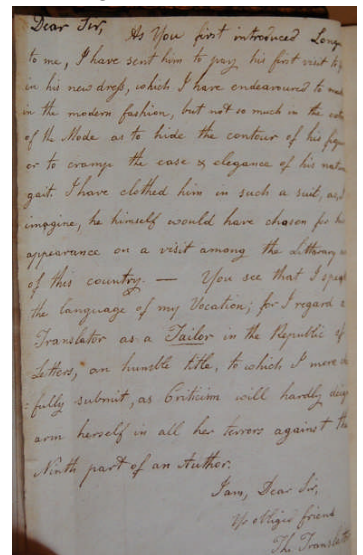 Dear Sir, As You first introduced Long
to me, I have sent him to pay his first visit to
in his new dress, which I have endeavoured to
in the modern fashion, but not so much in the
of the Mode as to hide the contour of his figu
or to cramp the ease & elegance of his natu
gait. I have clothed him in such a suit, as,
imagine, he himself would have chosen for his
appearance on a visit among the Litterary
of this country. — You see that I speak
the language of my Vocation; for I regard a
Translator as a Tailor in the Republic of
Letters, an humble title, to which I more
=fully submit, as Criticism will hardly
arm herself in all her terrors against the
Ninth part of an Author.
I am, Dear Sir,
Yr obliged friend
The Translator